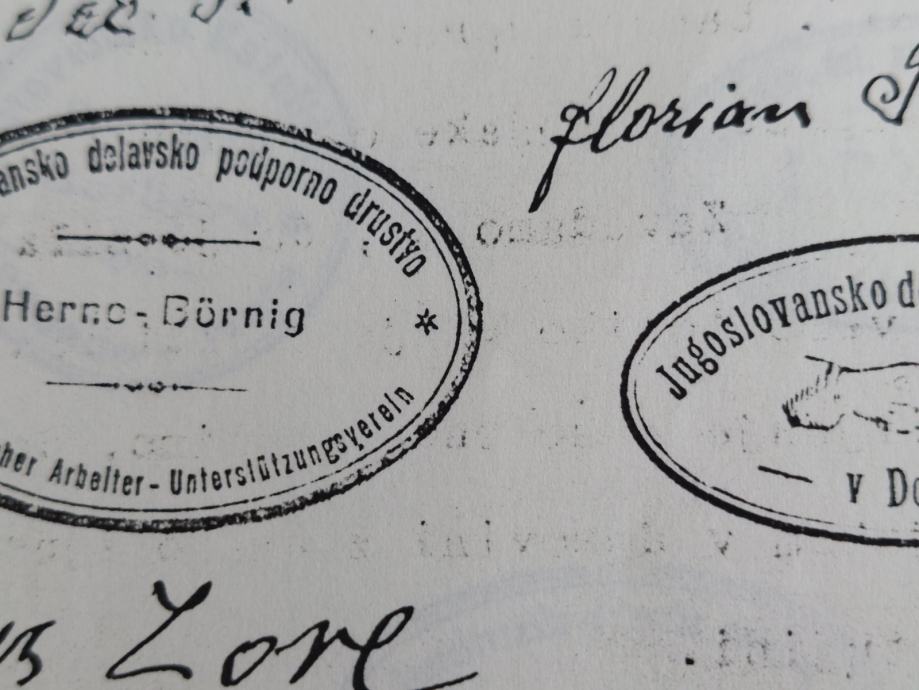 florian
ansko delavsko podporno drustvo
Herne-Börnig
her Arbeiter-Unterstützungsverein
Jugoslovansko d
v De
Zore